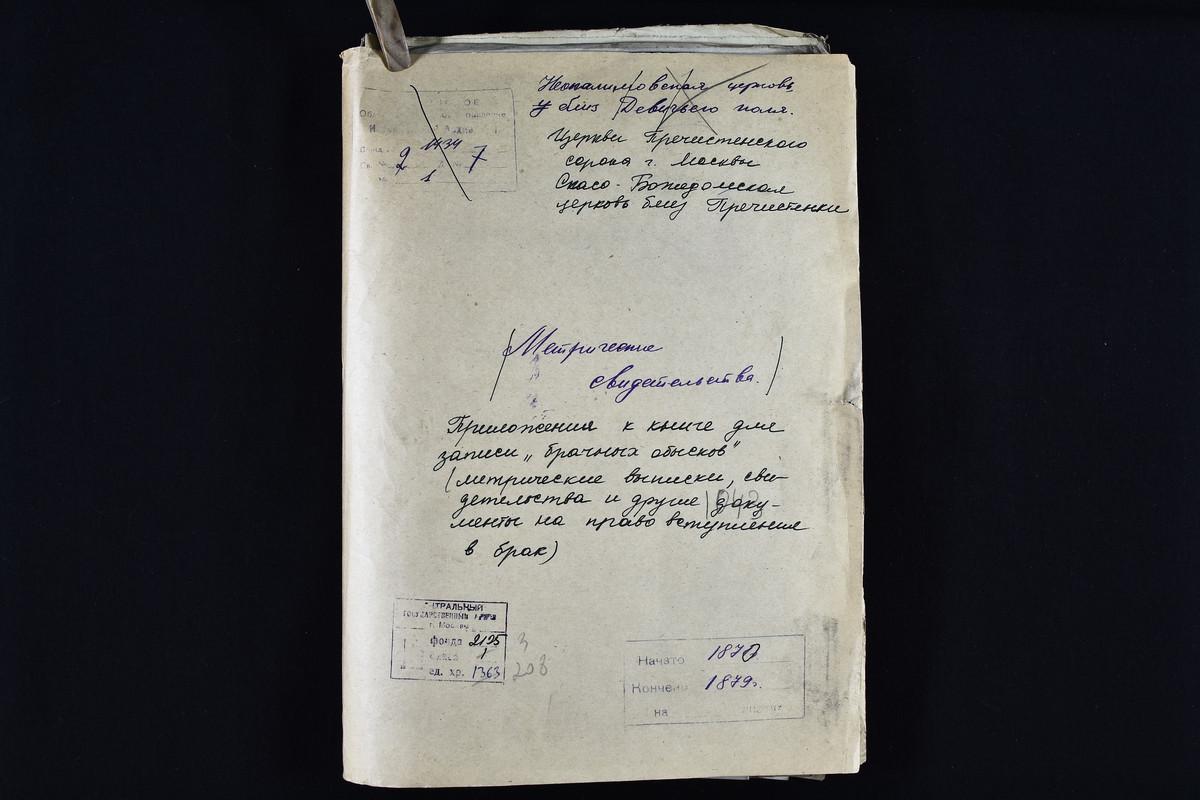 Неопалимовская церковь
у близ Девичьего поля.
Церкви Пречистенского
сорока г. Москвы
Спасо-Божедомская
церковь близ Пречистенки
1434
2 7
1
Метрические
свидетельства.
Приложения к книге для
записи „брачных обысков"
(метрические выписки, сви-
детельства и другие доку-
менты на право вступления
в брак)
ГОСУДАРСТВЕННЫЙ АРХИВ
г. Москвы
фонда 2125
1
ед. хр. 1363
3
208
Начато 1878
Кончено 1879г.
на